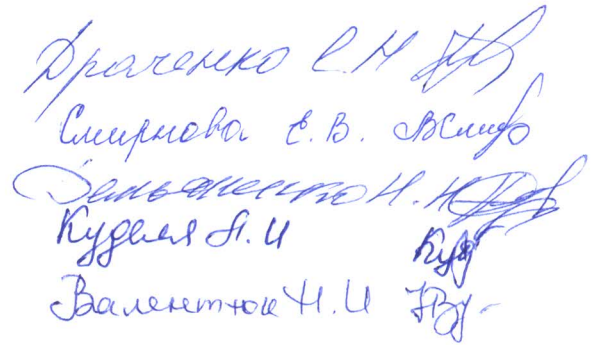 Драченко С. Н
Смирнова Е. В.
Демьяненко Н. Н
Куделя А. И Куд
Валентюк Н. И